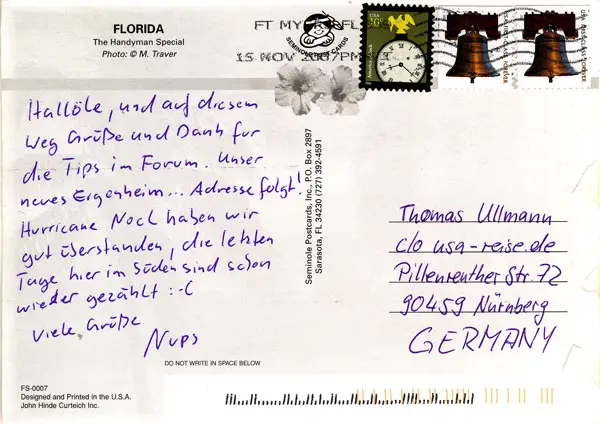 FLORIDA
The Handyman Special
Photo: © M. Traver
FT MYERS FL
15 NOV 2007 PM
SEMINOLE POST CARDS
USA
10c
American Clock
USA FIRST-CLASS FOREVER
USA FIRST-CLASS FOREVER
Hallöle, und auf diesem
Weg Grüße und Dank für
die Tips im Forum. Unser
neues Eigenheim... Adresse folgt!
Hurricane Noel haben wir
gut überstanden, die letzten
Tage hier im Süden sind schon
wieder gezählt :-C
Viele Grüße
Nups
Seminole Postcards, Inc., P.O. Box 2897
Sarasota, FL 34230 (727) 392-4591
Thomas Ullmann
c/o usa-reise.de
Pillenreuther Str. 72
90459 Nürnberg
GERMANY
DO NOT WRITE IN SPACE BELOW
FS-0007
Designed and Printed in the U.S.A.
John Hinde Curteich Inc.